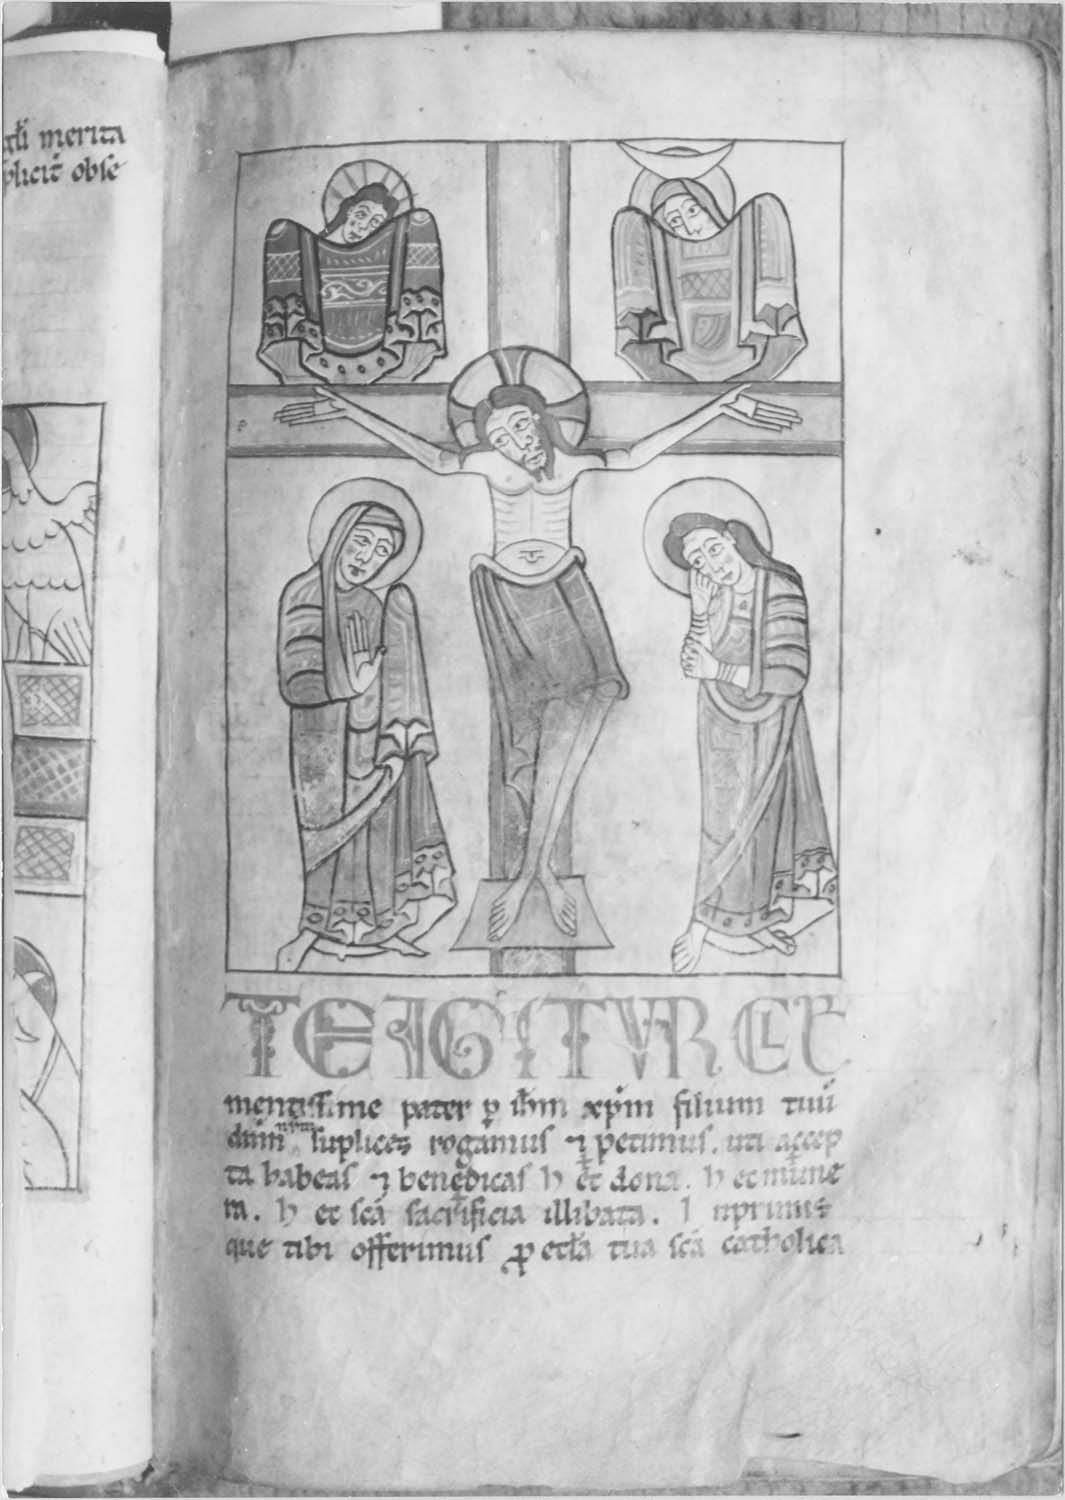 głi merita
plicit̄ obse
TE IGITVR CLE
mentissime pater ꝑ ih̅m xp̅m filium tuū
dn̅m nr̅m suplices rogamus ⁊ petimus. uti accep
ta habeas ⁊ benedicas h ec dona. h ec mune
ra. h ec sc̅a sacrificia illibata. I nprimis
que tibi offerimus ꝓ ecła tua sc̅a catholica